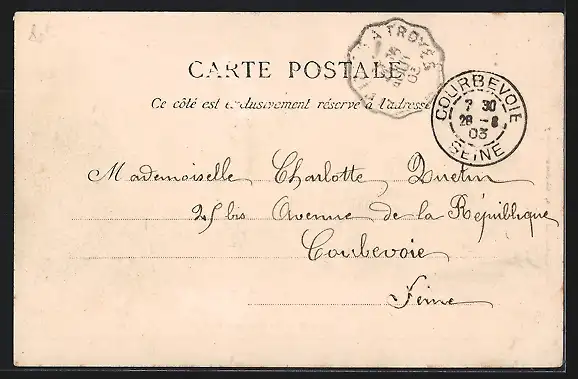 A TROYES
25
AOUT
03
CARTE POSTALE
Ce côté est exclusivement réservé à l'adresse
COURBEVOIE
7 30
28 - 8
03
SEINE
Mademoiselle Charlotte Quetin
25 bis Avenue de la République
Courbevoie
Seine